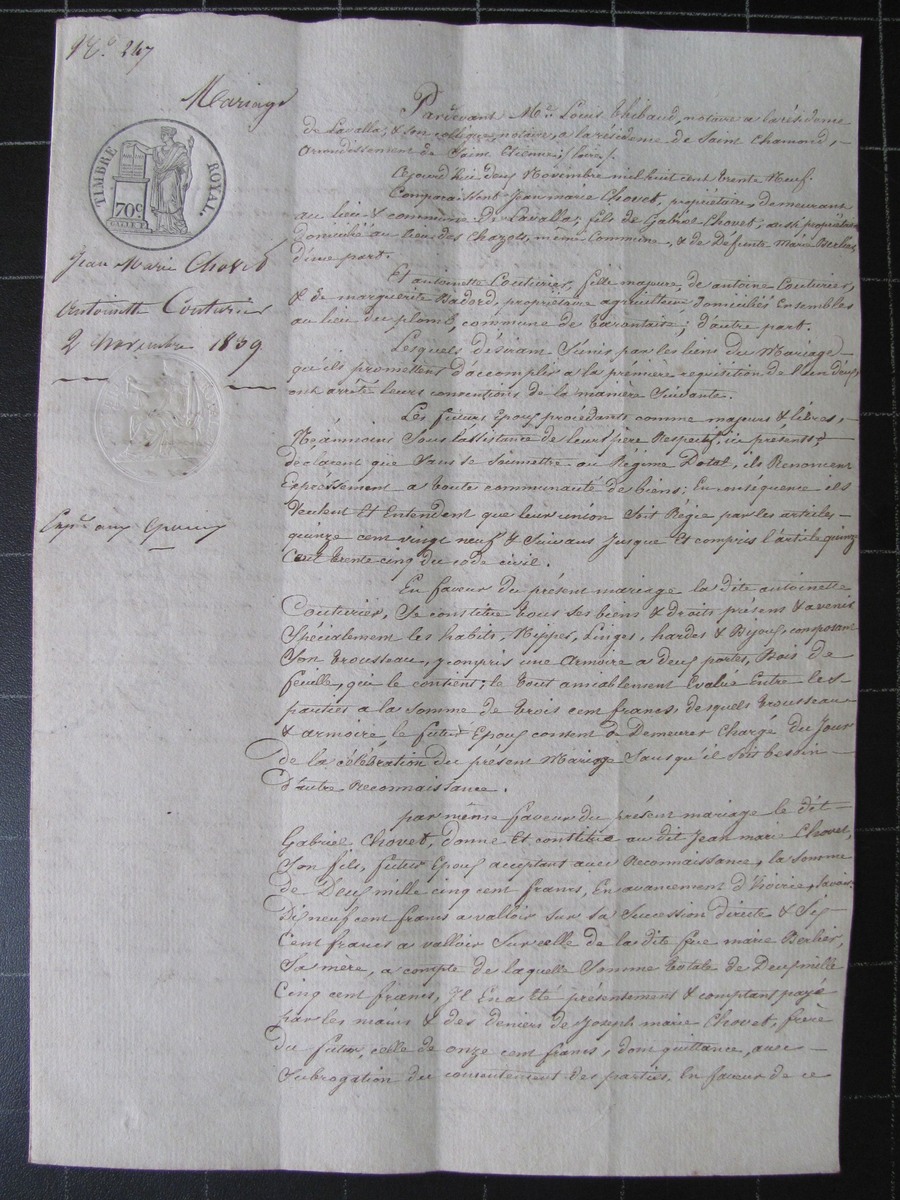 N.° 247
Mariage
TIMBRE ROYAL.
70c
Jean Marie Chovet
Antoinette Couturier
2 Novembre 1839
Expon aux Epoux
Pardevant Me. Louis Thibaud, notaire a la résidence
de Lavalla, & son collègue notaire, a la résidence de Saint Chamond, -
Arrondissement de Saint Etienne (Loire).
Aujourd'hui deux Novembre mil huit cent trente Neuf.
Comparaissent Jean marie Chovet, propriétaire, demeurant
au lieu & commune De Lavalla, fils de Gabriel Chovet, aussi propriétaire
domicilié au lieu des Chazots, même Commune, & de Défunte Marie Berlier,
d'une part.
Et antoinette Couturier, fille majeure, de antoine Couturier,
& de marguerite Badard, propriétaire agriculteur domiciliés Ensembles
au lieu du plomb, commune de Tarantaise; d'autre part.
Lesquels désirant s'unir par les liens du Mariage -
qu'ils promettent d'accomplir a la première réquisition de l'un d'eux
ont arrêté leurs conventions de la manière Suivante.
Les futurs Epoux procédants comme majeurs & libres, -
Néanmoins Sous l'assistance de leurs père Respectif, ici présents
déclarent que Sans se Soumettre au Régime Dotal, ils Renoncent
Expressement a toute communauté de biens; En conséquence ils
Veulent Et Entendent que leur union Soit Régie par les articles -
quinze cent vingt neuf & Suivans Jusque Et compris l'article quinze
Cent trente cinq du code civil.
En faveur du présent mariage la dite antoinette
Couturier, Se constitue tous ses biens & droits présent & avenir
Spécialement les habits, Nippes, Linges, hardes & Bijoux, composant
Son trousseau, y compris une armoire a deux portes, Bois de
feuille, qui le contient; le tout amiablement Evalué Entre les -
parties a la Somme de trois cent francs, desquels trousseau
& armoire, le futur Epoux consent De Demeurer Chargé du Jour
de la célébration du présent Mariage Sans qu'il Soit besoin -
D'autre Reconnaissance.
par même faveur du présent mariage le dit -
Gabriel Chovet, donne Et constitue au dit Jean marie Chovet,
Son fils, futur Epoux acceptant avec Reconnaissance, la Somme
de Deux mille cinq cent francs, En avancement d'hoirie, savoir:
Dix neuf cent francs a valloir sur sa Succession directe & Six -
Cent francs a valloir Sur celle de la dite feue marie Berlier,
Sa mère, a compte de laquelle Somme totale de Deux mille
Cinq cent francs, Il En a Eté présentement & comptant payé
par les mains & des deniers de Joseph marie Chovet, frère
du futur, celle de onze cent francs, dont quittance, avec -
Subrogation du consentement des parties, En faveur de ce